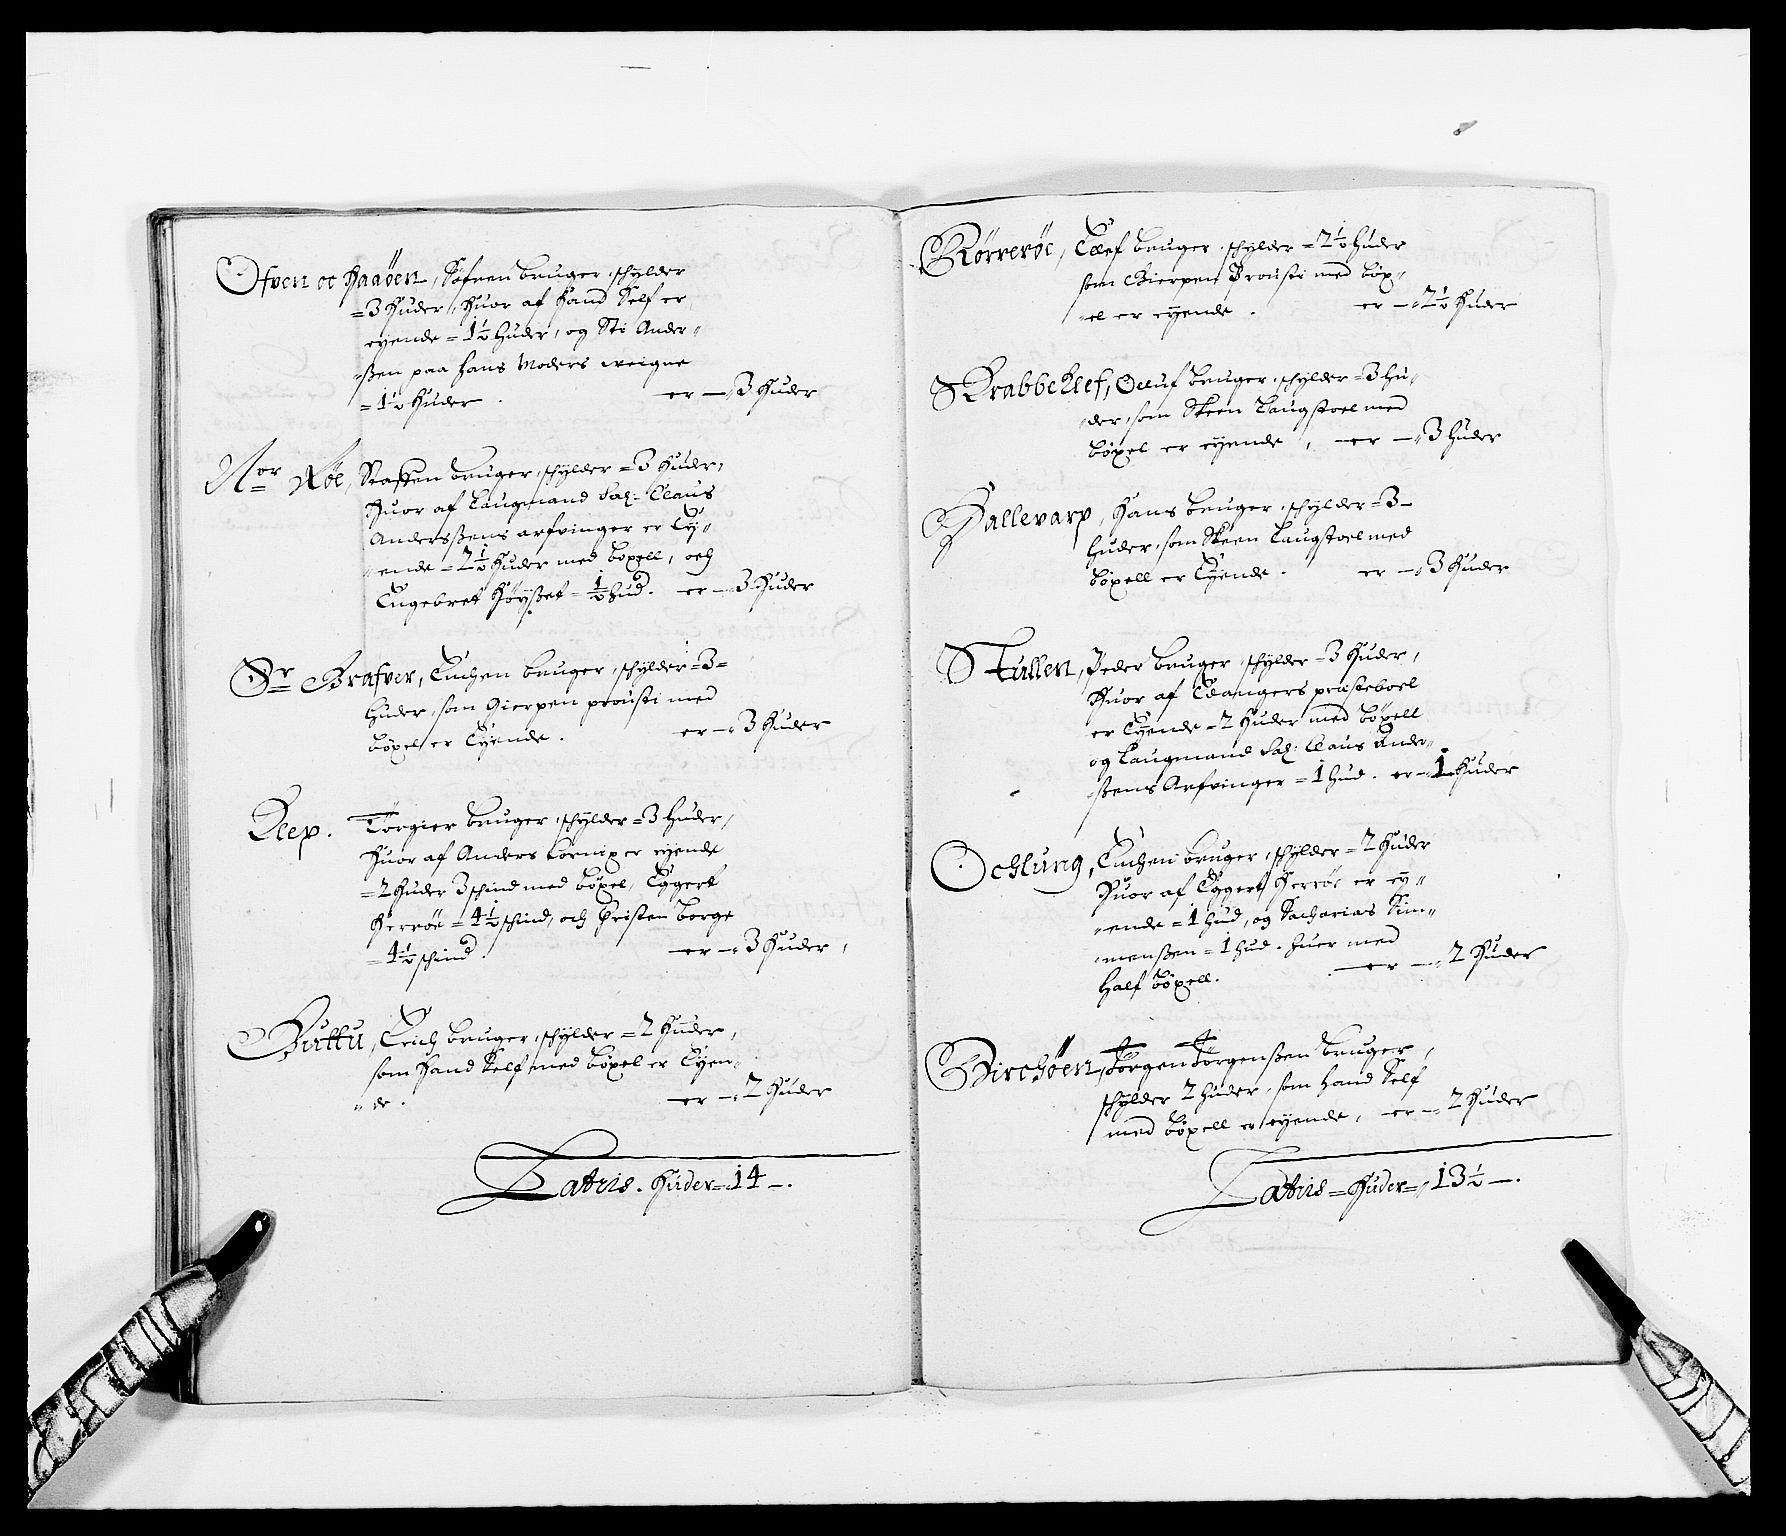 Ofven oc Haaøen, Søfren bruger, schylder
= 3 Huder, Huor af Hand Self er
eyende = 1½ Huder, og Sti Ander„
„ßen paa Hans Moders weigne
= 1½ Huder. er — 3 Huder
Nor Røe, Staffen bruger, schylder = 3 Huder,
Huor af Laugmand Sal: Claus
Andersßens arfvinger er Ey„
„ende = 2½ Huder med bøxell, och
Engebret Høyßet = ½ hud. er — 3 Huder
Sr Grafver, Tuchen bruger, schylder = 3 =
Huder, som Gierpen prousti med
bøxel er Eyende. er — 3 Huder
Klep. Torgier bruger, schylder = 3 Huder,
Huor af Anders Cornix er eyende
= 2 Huder 3 schind med bøxel, Eggert
Herrøe = 4½ schind, och Christen borge
= 4½ schind. er — 3 Huder,
Guttu, Erich bruger, schylder = 2 Huder,
som Hand Self med bøxel er Eyen„
„de. er — 2 Huder
Latris. Huder = 14 —.
Rørrerøe, Ellef bruger, schylder = 2½ Huder
som Gierpen Prousti med bøx„
„el er eyende. er — 2½ Huder
Krabbeklef, Olluf bruger, schylder = 3 hu„
„der, som Skeen Laugstoel med
bøxel er eyende, er — 3 Huder
Hallevarp, Hans bruger, schylder = 3 —
Huder, som Skeen Laugstoel med
bøxell er Eyende. er — 3 Huder
Stullen, Peder bruger, schylder = 3 Huder,
Huor af Edangers præsteboel
er Eyende = 2 Huder med bøxell
og Laugmand Sal: Claus Ander„
„ßens Arfvinger = 1 hud. er — 1 Huder
Ochlung, Tuchen bruger, schylder = 2 Huder
Huor af Eggert Herrøe er ey„
„ende = 1 hud, og Sacharias Sim„
„menßen = 1 hud. huer med
Half bøxell. er — 2 Huder
Birchøen, Jørgen Jørgenßen bruger,
schylder 2 Huder, som Hand Self
med bøxell er eyende, er — 2 Huder
Latris = Huder = 13½ —.